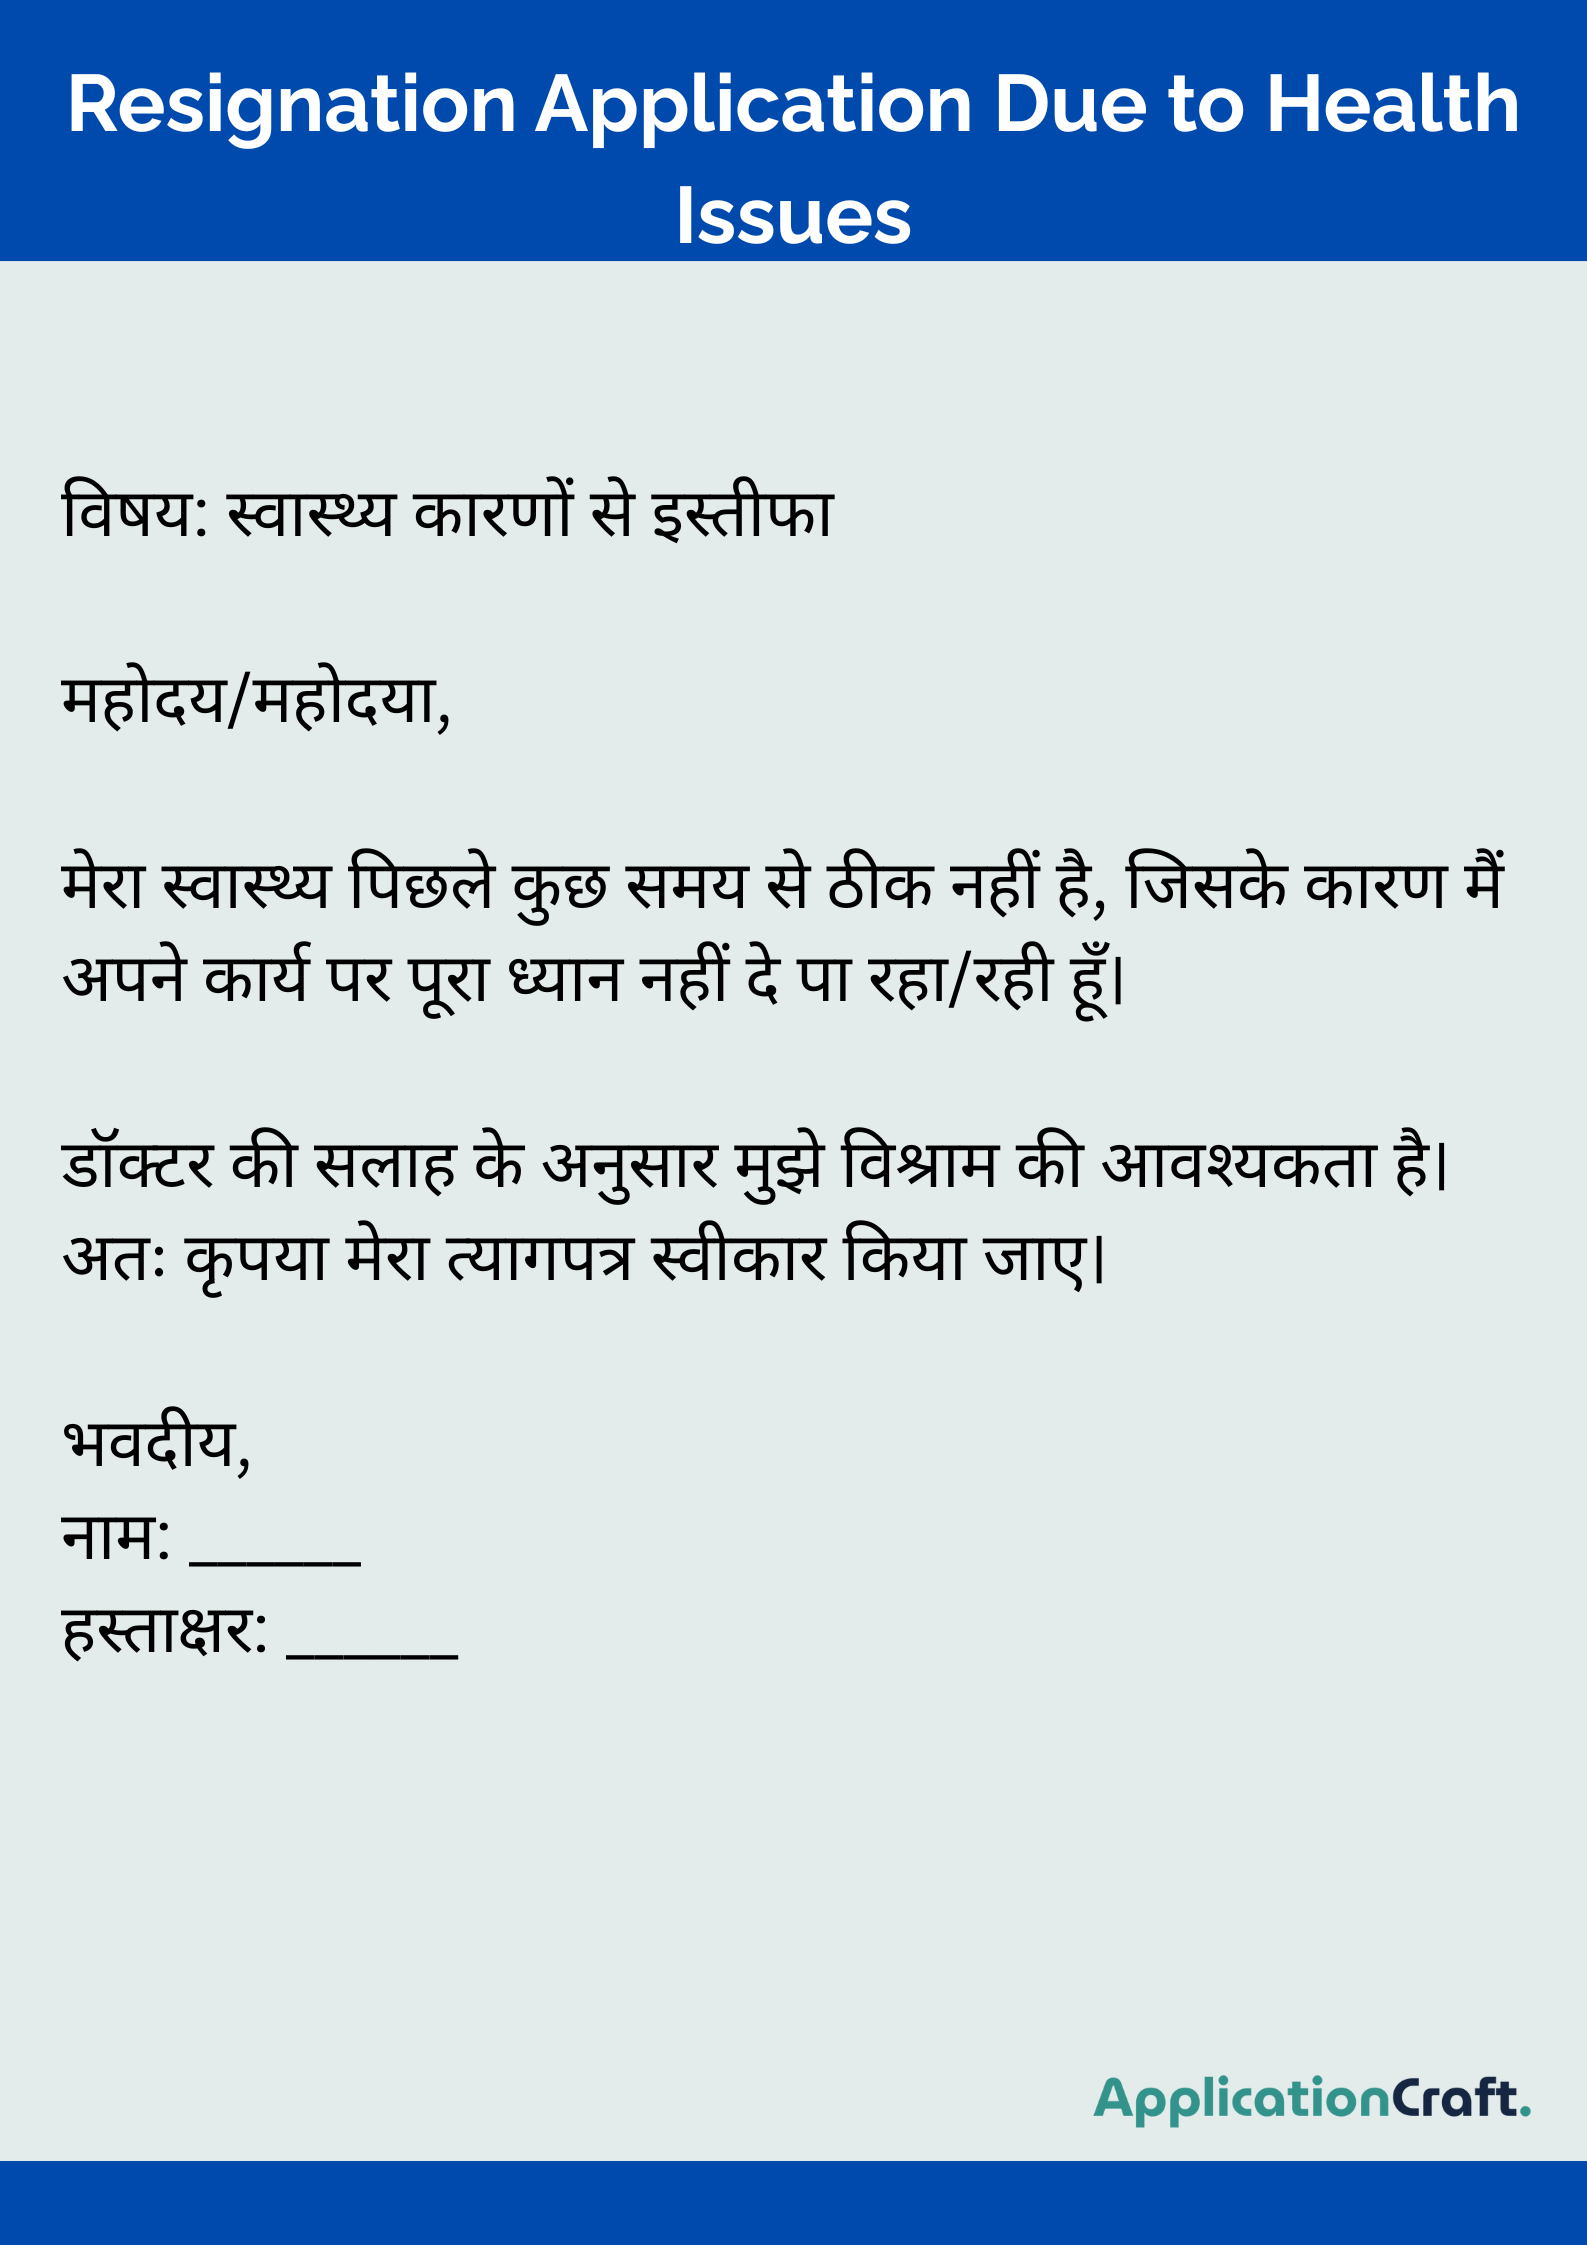 Resignation Application Due to Health
Issues
विषय: स्वास्थ्य कारणों से इस्तीफा
महोदय/महोदया,
मेरा स्वास्थ्य पिछले कुछ समय से ठीक नहीं है, जिसके कारण मैं
अपने कार्य पर पूरा ध्यान नहीं दे पा रहा/रही हूँ।
डॉक्टर की सलाह के अनुसार मुझे विश्राम की आवश्यकता है।
अतः कृपया मेरा त्यागपत्र स्वीकार किया जाए।
भवदीय,
नाम: ______
हस्ताक्षर: ______
ApplicationCraft.